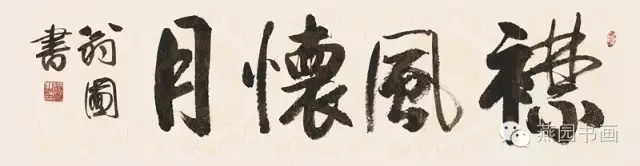 襟風懷月
翁圖
書
燕园书画